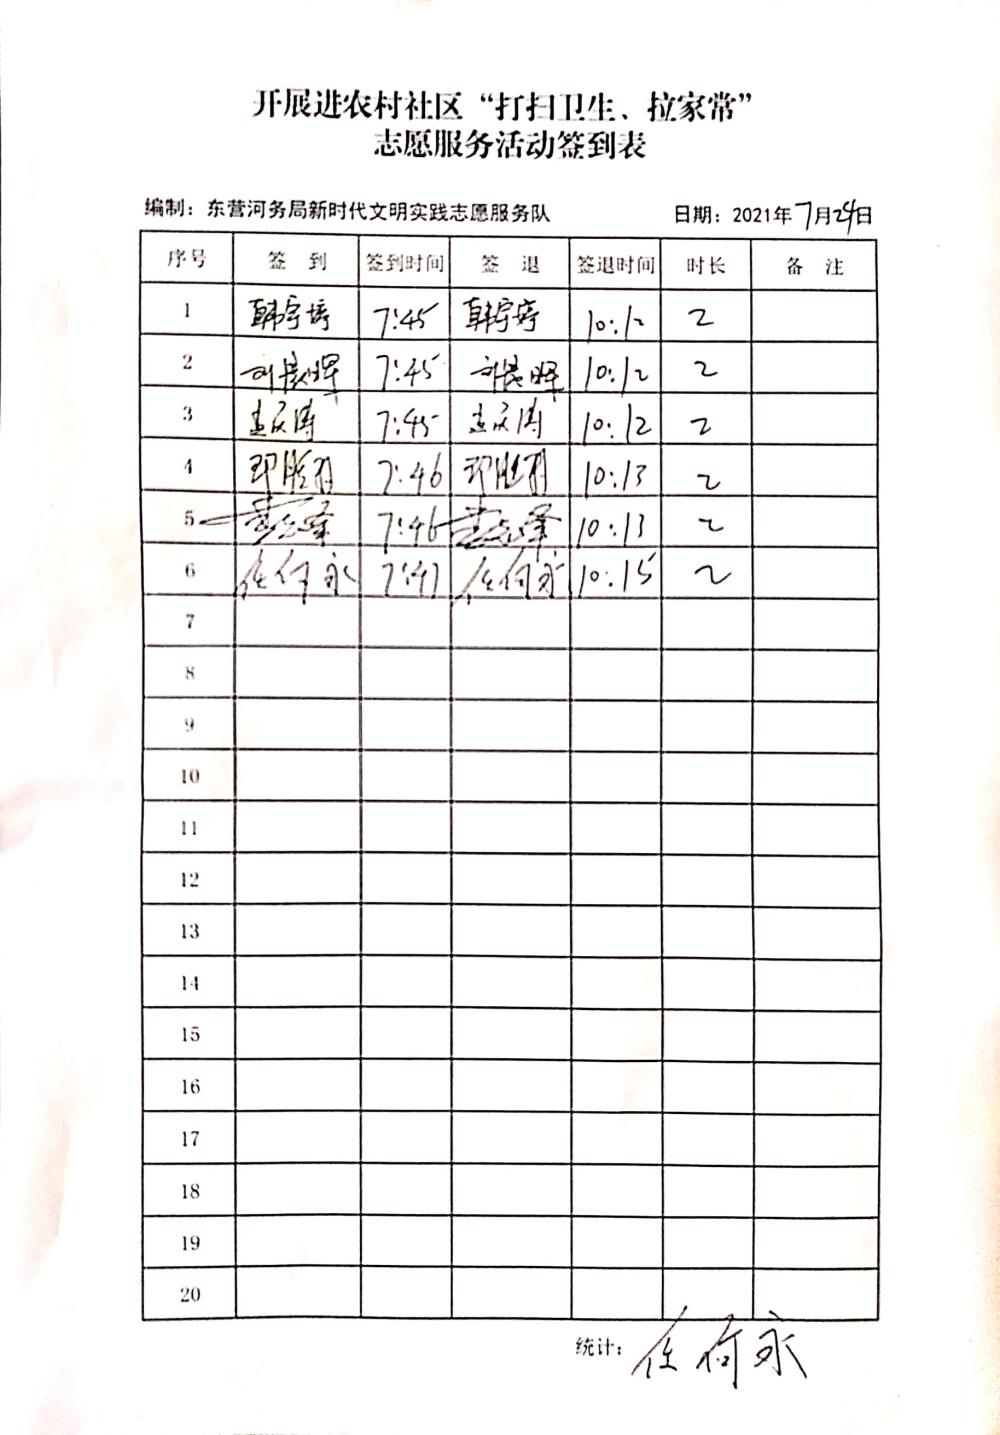 开展进农村社区“打扫卫生、拉家常”
志愿服务活动签到表
编制：东营河务局新时代文明实践志愿服务队 日期：2021年7月24日
序号 签 到 签到时间 签 退 签退时间 时长 备 注
1 韩宇婷 7:45 韩宇婷 10:12 2
2 刘晨晖 7:45 刘晨晖 10:12 2
3 孟庆涛 7:45 孟庆涛 10:12 2
4 7:46 10:13 2
5 7:46 10:13 2
6 任何永 7:47 任何永 10:15 2
7
8
9
10
11
12
13
14
15
16
17
18
19
20
统计：任何永